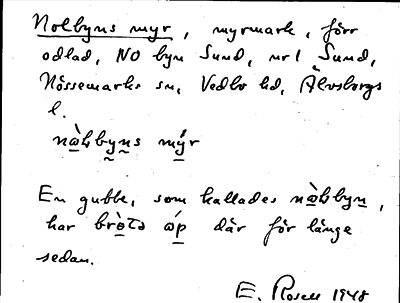 Nolbyns myr, myrmark, förr
odlad, NO byn Sund, nr 1 Sund,
Nössemarks sn, Vedbo hd, Älvsborgs
l.
nὼḷbyns mýr
En gubbe, som kallades nὼḷbyn,
har brò̱tə ώp där för länge
sedan.
E. Rosell 1948